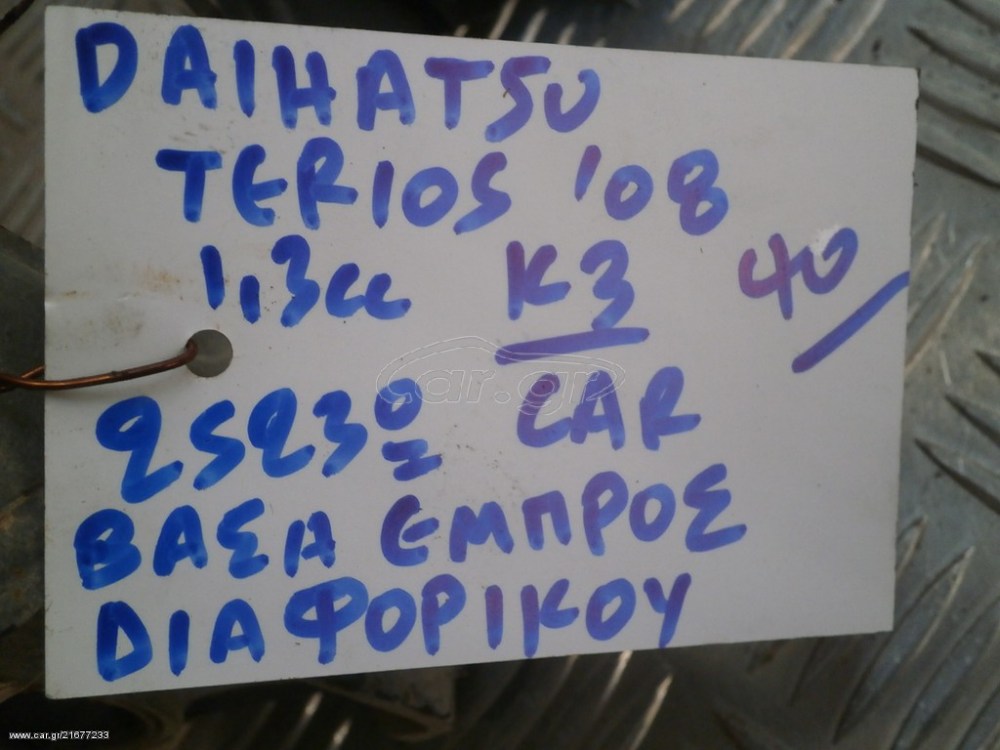 DAIHATSU
TERIOS '08
1,3cc K3 40/
25230 CAR
ΒΑΣΗ ΕΜΠΡΟΣ
DΙΑΦΟΡΙΚΟΥ
car.gr
www.car.gr/21677233